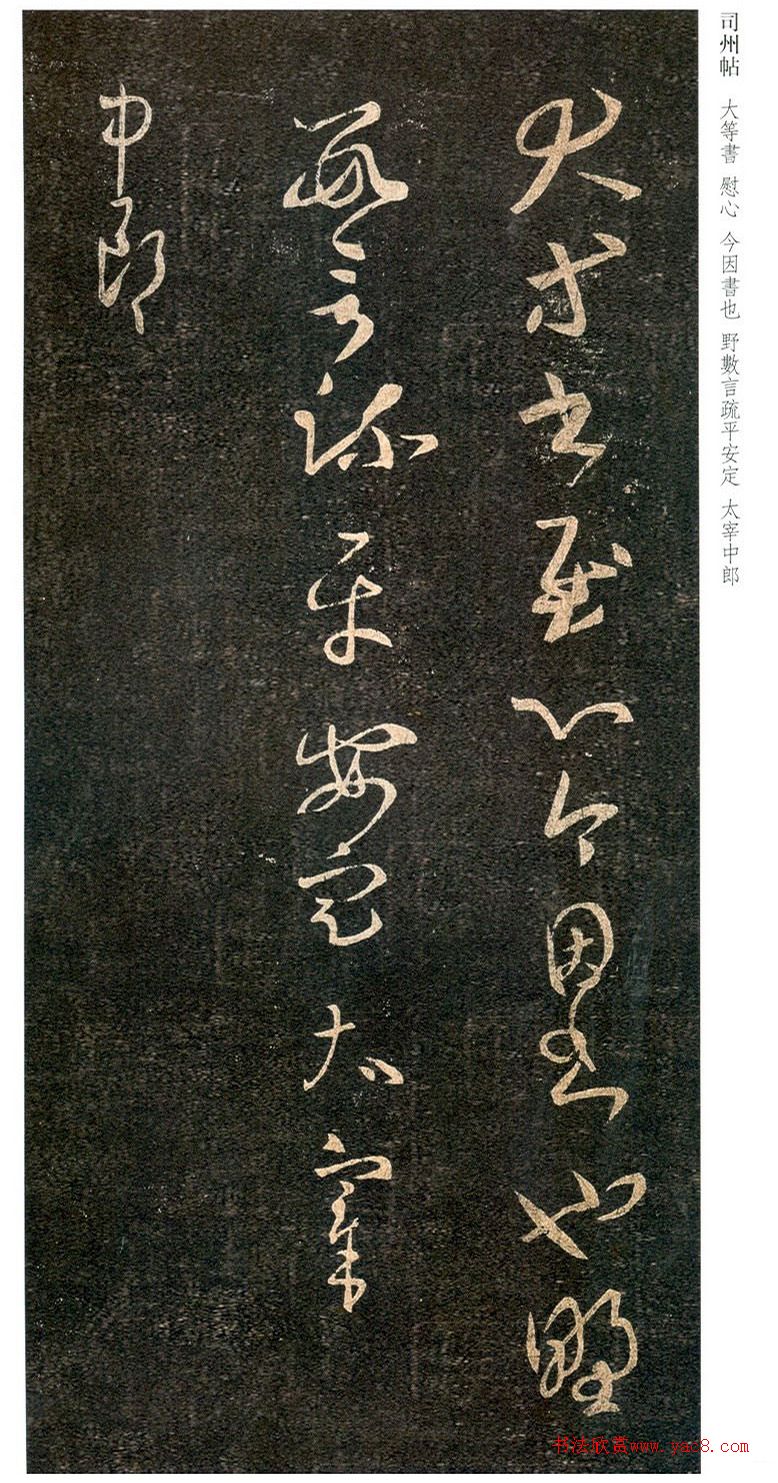 司州帖 大等書 慰心 今因書也 野數言疏平安定 太宰中郎
大等書慰心今因書也野
數言疏平安定太宰
中郎
书法欣赏www.yac8.com